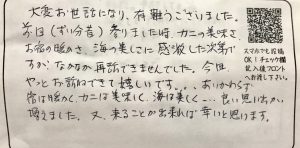 大変お世話になり、有難うございました。
前回(ずい分昔)参りました時、カニの美味さ、
お宿の暖かさ、海の美しさに感激した次第で
すが、なかなか再訪できませんでした。今回、
やっとお訪ねできて嬉しいです。。。あいかわらず
皆は暖かく、カニは美味しく、海は美しく…良い思い出が
頂えました。又、来ることが出来れば幸いと思います。
スマホでも投稿
OK!チェック欄
記入後フロント
へお渡し下さい。